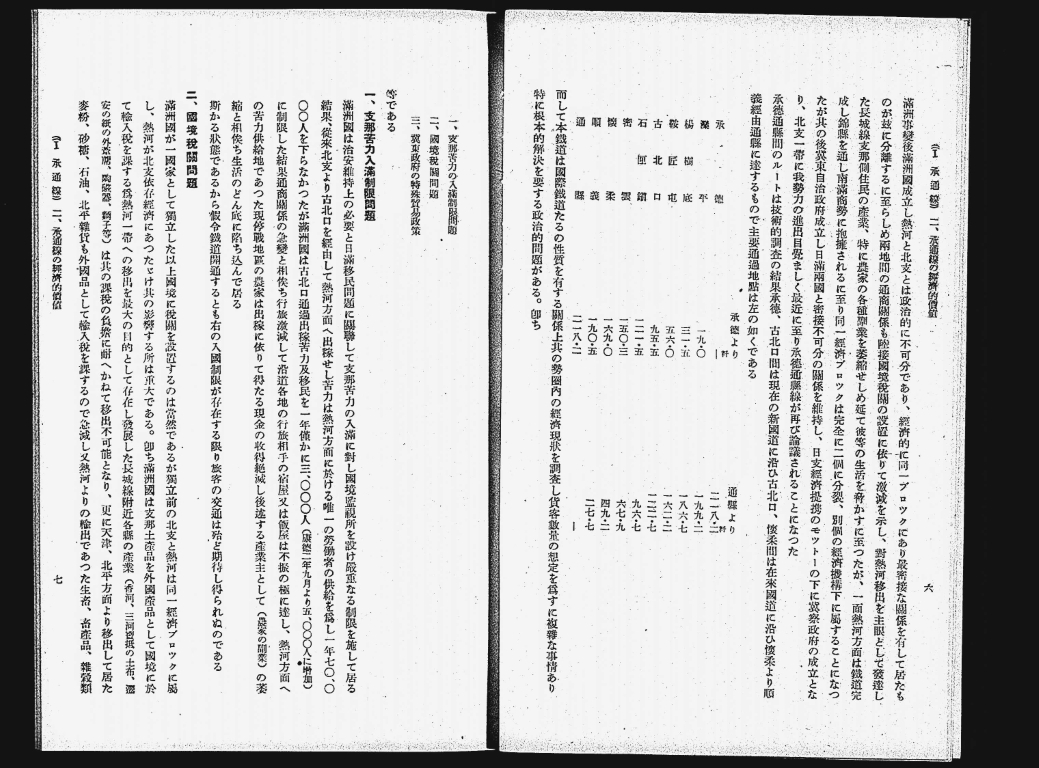 (Ⅱ 承通線) 二、承通線の經濟的價値
六
滿洲事變後滿洲國成立し熱河と北支とは政治的に不可分であり、經濟的に同一ブロックにあり最密接な關係を有して居たも
のが玆に分離するに至らしめ兩地間の通商關係も陸接國境税關の設置に依りて激減を示し、對熱河移出を主眼として發達し
た長城線支那側住民の產業、特に農家の各種副業を萎縮せしめ延て彼等の生活を脅かすに至つたが、一面熱河方面は鐵道完
成し錦縣を通し南滿商勢に抱擁されるに至り同一經濟ブロックは完全に二個に分裂、別個の經濟機構下に屬することになつ
たが其の後冀東自治政府成立し日滿兩國と密接不可分の關係を維持し、日支經濟提携のモットーの下に冀察政府の成立とな
り、北支一帶に我勢力の進出目覺ましく最近に至り承德通縣線が再び論議されることになつた
承德通縣間のルートは技術的調査の結果承德、古北口間は現在の新國道に沿ひ古北口、懷柔間は在來國道に沿ひ懷柔より順
義經由通縣に達するもので主要通過地點は左の如くである
承德より 通縣より
承德 — 二一八・二粁
灤平 一九・〇粁 一九九・二
楊樹底 三一・五 一八六・七
鞍匠屯 五六・〇 一六二・二
古北口 九五・五 一二二・七
石匣鎭 一二一・五 九六・七
密雲 一五〇・三 六七・九
懷柔 一六九・〇 四九・二
順義 一九〇・五 二七・七
通縣 二一八・二 —
而して本鐵道は國際鐵道たるの性質を有する關係上其の勢圈內の經濟現狀を調查し貨客數量の想定を爲すに複雜な事情あり
特に根本的解決を要する政治的問題がある。卽ち
一、支那苦力の入滿制限問題
二、國境稅關問題
三、冀東政府の特殊貿易政策
等である
一、支那苦力入滿制限問題
滿洲國は治安維持上の必要と日滿移民問題に關聯して支那苦力の入滿に對し國境監視所を設け嚴重なる制限を施して居る
結果、從來北支より古北口を經由して熱河方面へ出稼せし苦力は熱河方面に於ける唯一の勞働者の供給を爲し一年七〇、〇
〇〇人を下らなかつたが滿洲國は古北口通過出稼苦力及移民を一年僅かに三、〇〇〇人(康德二年九月より五、〇〇〇人に增加)
に制限した結果通商關係の急變と相俟ち行旅激減して沿道各地の行旅相手の宿屋又は飯屋は不振の極に達し、熱河方面へ
の苦力供給地であつた現停戰地區の農家は出稼に依りて得たる現金の收得絕滅し後述する產業主として(農家の副業)の萎
縮と相俟ち生活のどん底に陷ち込んで居る
斯かる狀態であるから假令鐵道開通するとも右の入國制限が存在する限り旅客の交通は殆ど期待し得られぬのである
二、國境稅關問題
滿洲國が一國家として獨立した以上國境に稅關を設置するのは當然であるが獨立前の北支と熱河は同一經濟ブロックに屬
し、熱河が北支依存經濟にあつただけ其の影響する所は重大である。卽ち滿洲國は支那土產品を外國產品として國境に於
て輸入稅を課する爲熱河一帶への移出を最大の目的として存在し發展した長城線附近各縣の產業(香河、三河寶坻の土布、遷
安の紙の外蓆類、陶磁器、鞴子等)は其の課稅の負擔に耐へかねて移出不可能となり、更に天津、北平方面より移出して居た
麥粉、砂糖、石油、北平雜貨も外國品として輸入稅を課するので急減し又熱河よりの輸出であつた生畜、畜產品、雜穀類
(Ⅱ 承通線) 二、承通線の經濟的價値
七